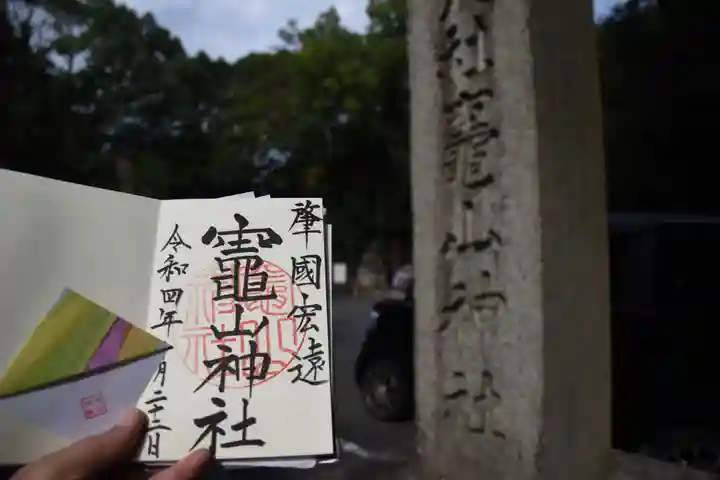 肇國宏遠
竈山神社
令和四年
月二十三日
社竈山神社